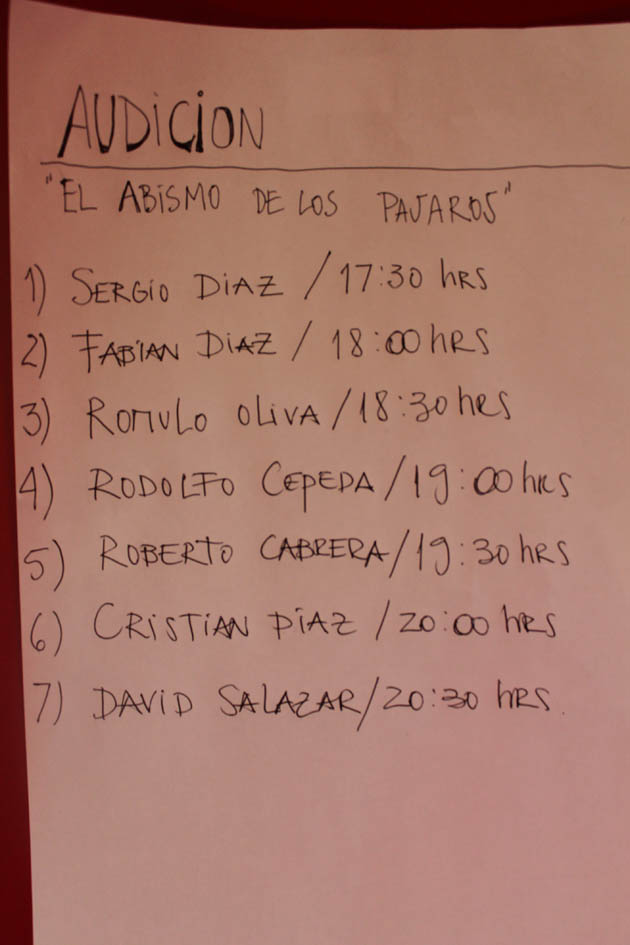 AUDICION
"EL ABISMO DE LOS PAJAROS"
1) SERGIO DIAZ / 17:30 hRS
2) FABIAN DIAZ / 18:00 hRS
3) ROMULO OLIVA / 18:30 hRS
4) RODOLFO CEPEDA / 19:00 hRS
5) ROBERTO CABRERA / 19:30 hRS
6) CRISTIAN DIAZ / 20:00 hRS
7) DAVID SALAZAR / 20:30 hRS.